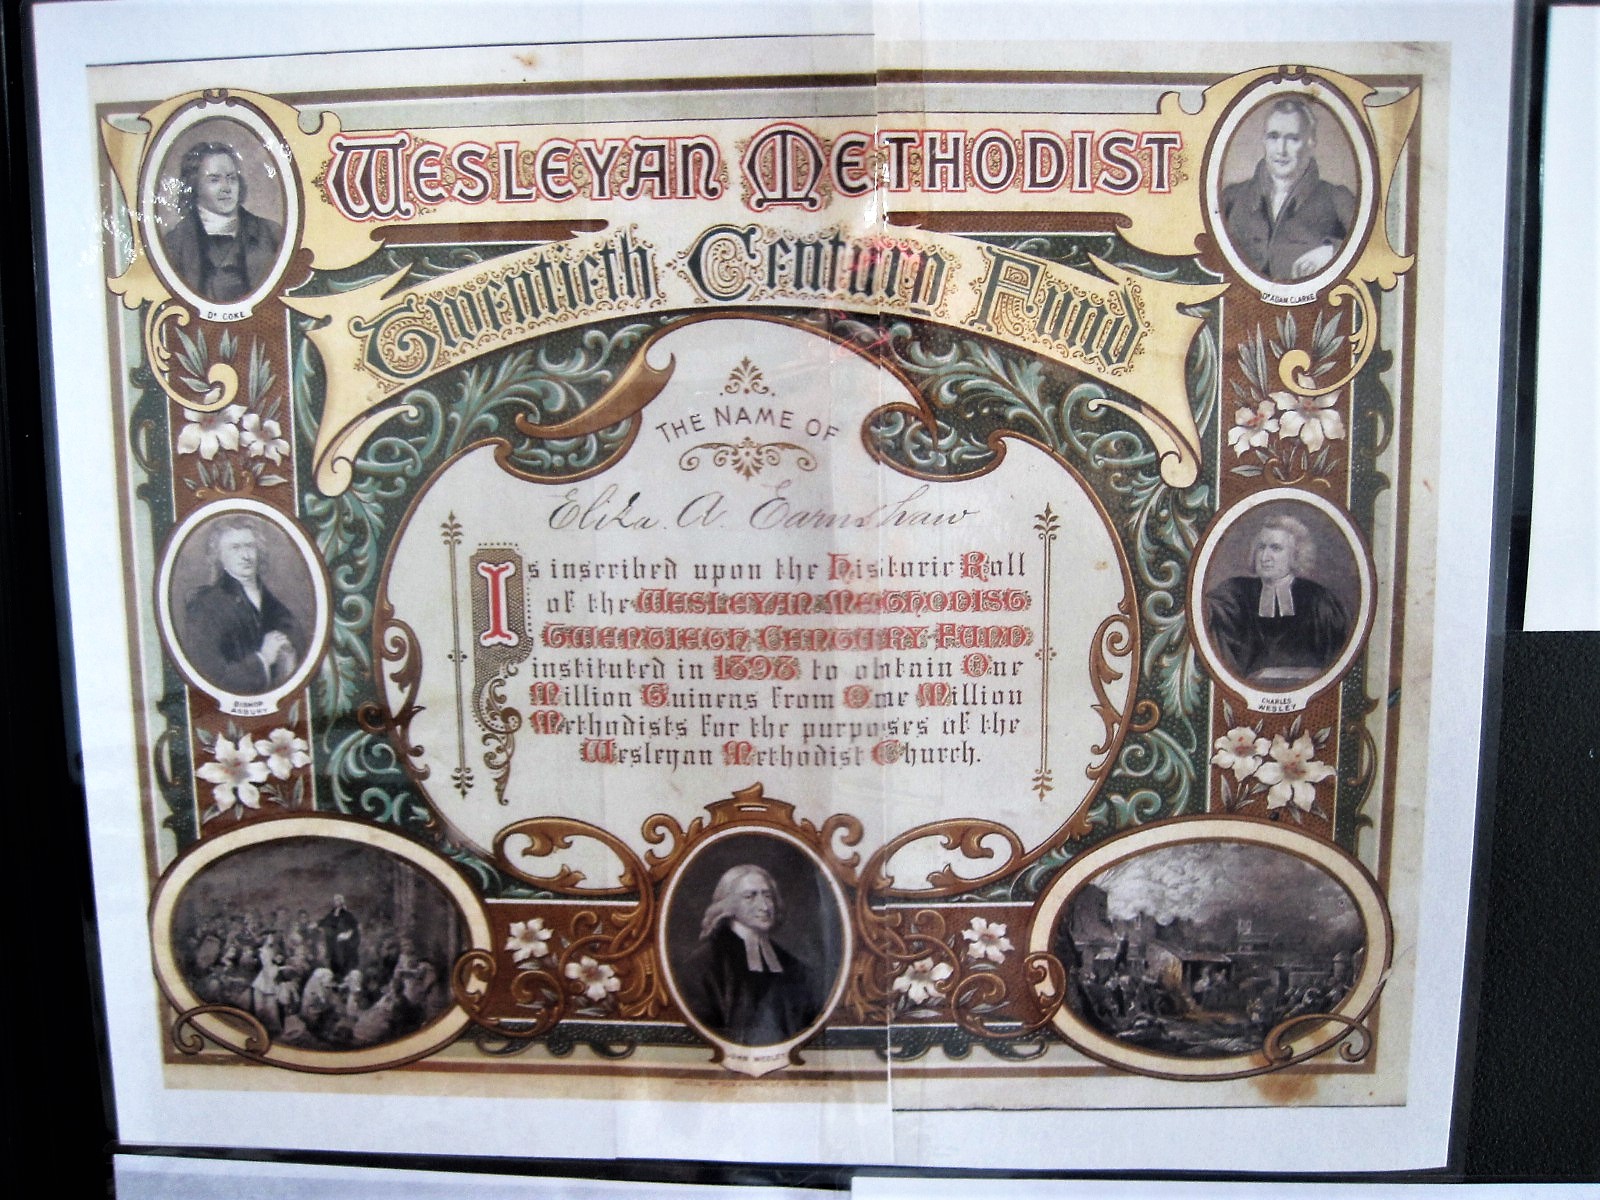 WESLEYAN METHODIST
Twentieth Century Fund
Dr COKE
Dr ADAM CLARKE
THE NAME OF
Eliza A. Earnshaw
Is inscribed upon the Historic Roll
of the WESLEYAN METHODIST
TWENTIETH CENTURY FUND
instituted in 1898 to obtain One
Million Guineas from One Million
Methodists for the purposes of the
Wesleyan Methodist Church.
BISHOP
ASBURY
CHARLES
WESLEY
JOHN WESLEY